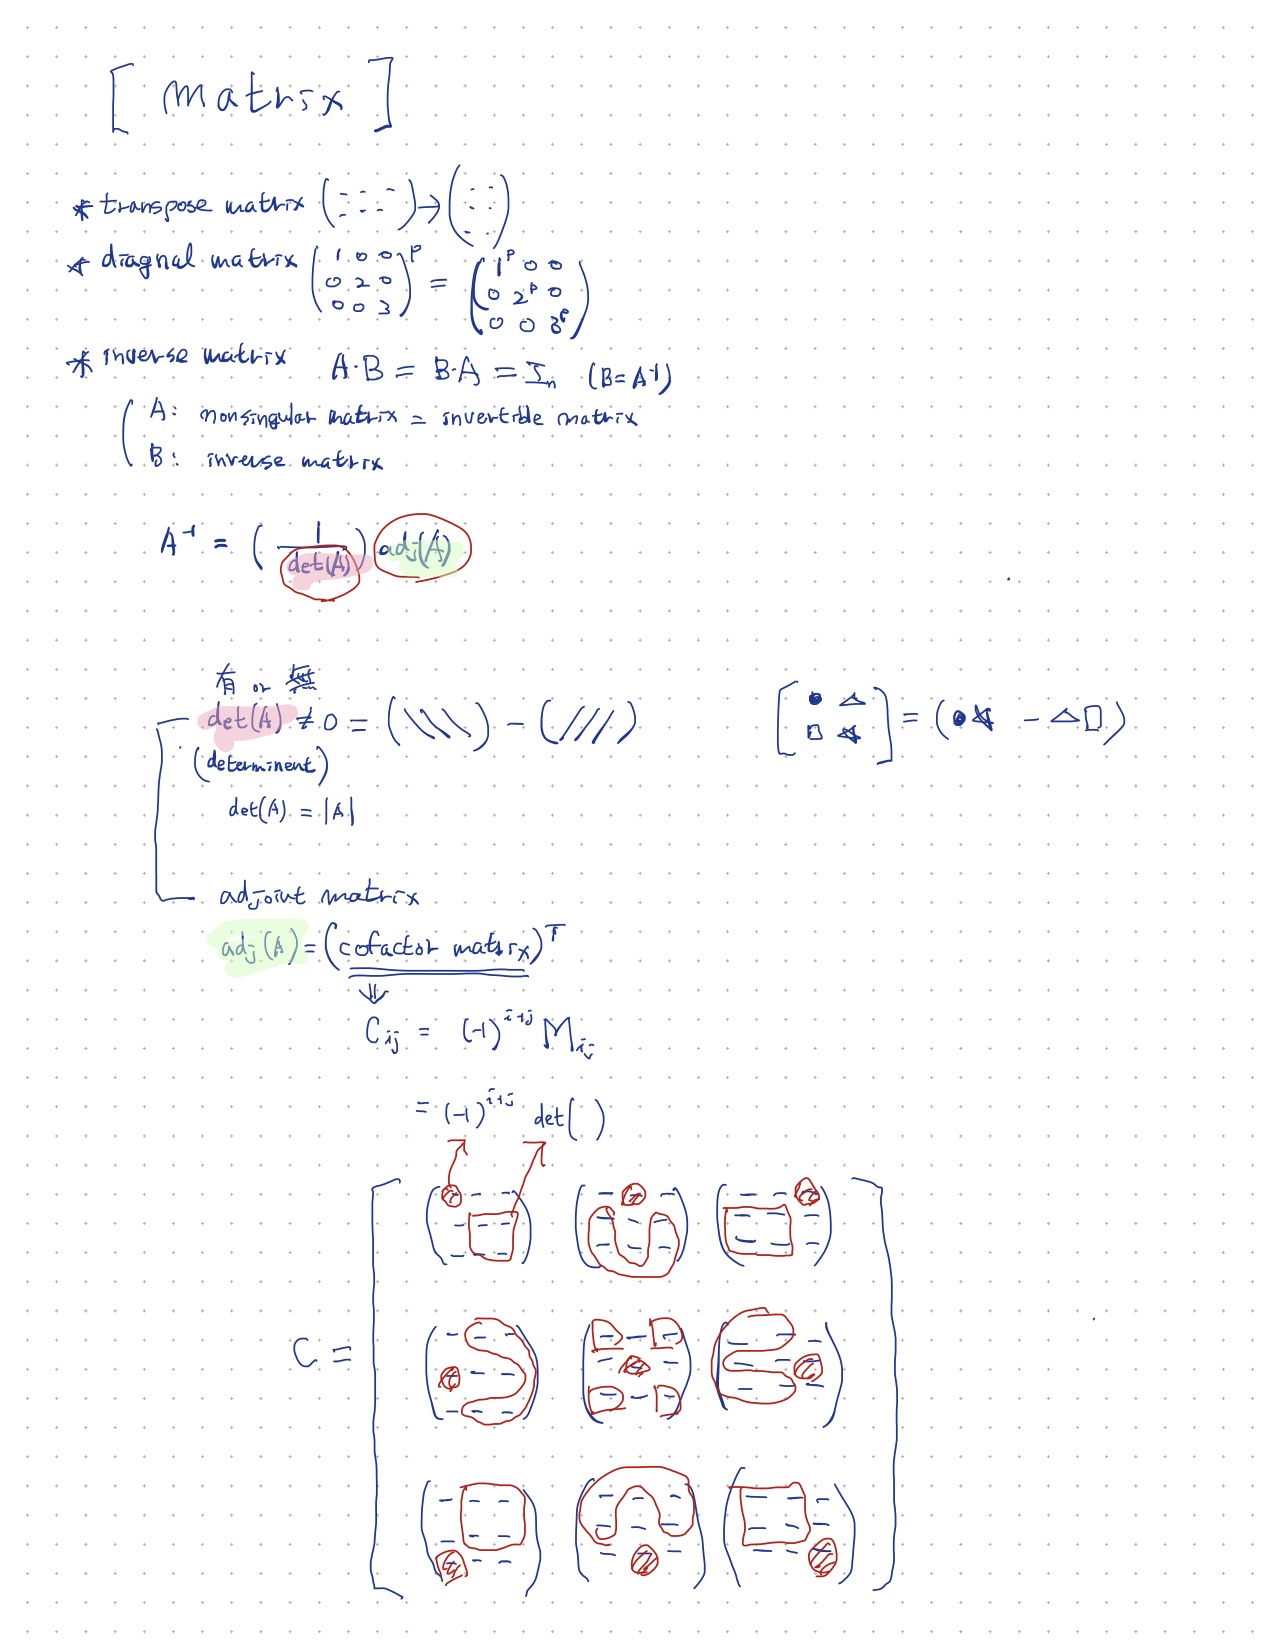 [ matrix ]
* transpose matrix ( - - - - - - ) → ( - - - - - - )
* diagnal matrix ( 1 0 0 0 2 0 0 0 3 )^p = ( 1^p 0 0 0 2^p 0 0 0 3^p )
* inverse matrix A·B = B·A = I_n (B=A^-1)
A: nonsingular matrix = invertible matrix
B: inverse matrix
A^-1 = ( 1 / det(A) ) adj(A)
有 or 無
det(A) ≠ 0 = (\\\\) - (////) [ ● △ □ ☆ ] = (●☆ - △□)
(determinent)
det(A) = |A|
adjoint matrix
adj(A) = (cofactor matrix)^T
⇓
C_ij = (-1)^i+j M_ij
= (-1)^i+j det( )
C =